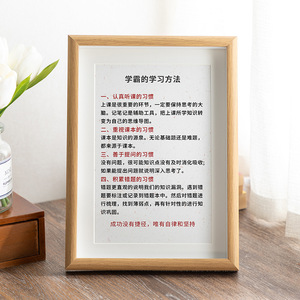 学霸的学习方法
一、认真听课的习惯
上课是很重要的环节，一定要保持思考的大
脑。记笔记是辅助工具，把上课所学知识转
变为自己的思维导图。
二、重视课本的习惯
课本是知识的源泉，无论基础题还是难题，
都来源于课本。
三、善于提问的习惯
没有问题，很可能知识点没有及时消化吸收；
如果能提出问题就说明深入思考了。
四、积累错题的习惯
错题更直观的说明我们的知识漏洞。遇到错
题要标注或记录到错题本中，然后对错题进
行梳理，找到薄弱点，再有针对性的进行知
识巩固。
成功没有捷径，唯有自律和坚持